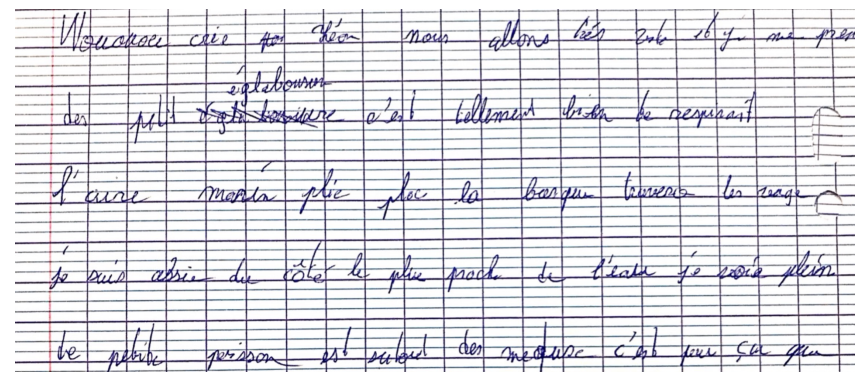 Wouaouou crie Théo nous allons très vite et je me pren
églabousur
des petit c'est tellement bien de respirait
l'aire marin plic ploc la barque traverse les vage
je suis assie du côté le plus proch de l'eau je voie plein
de petite poisson est surtout des meduse c'est pour ça que